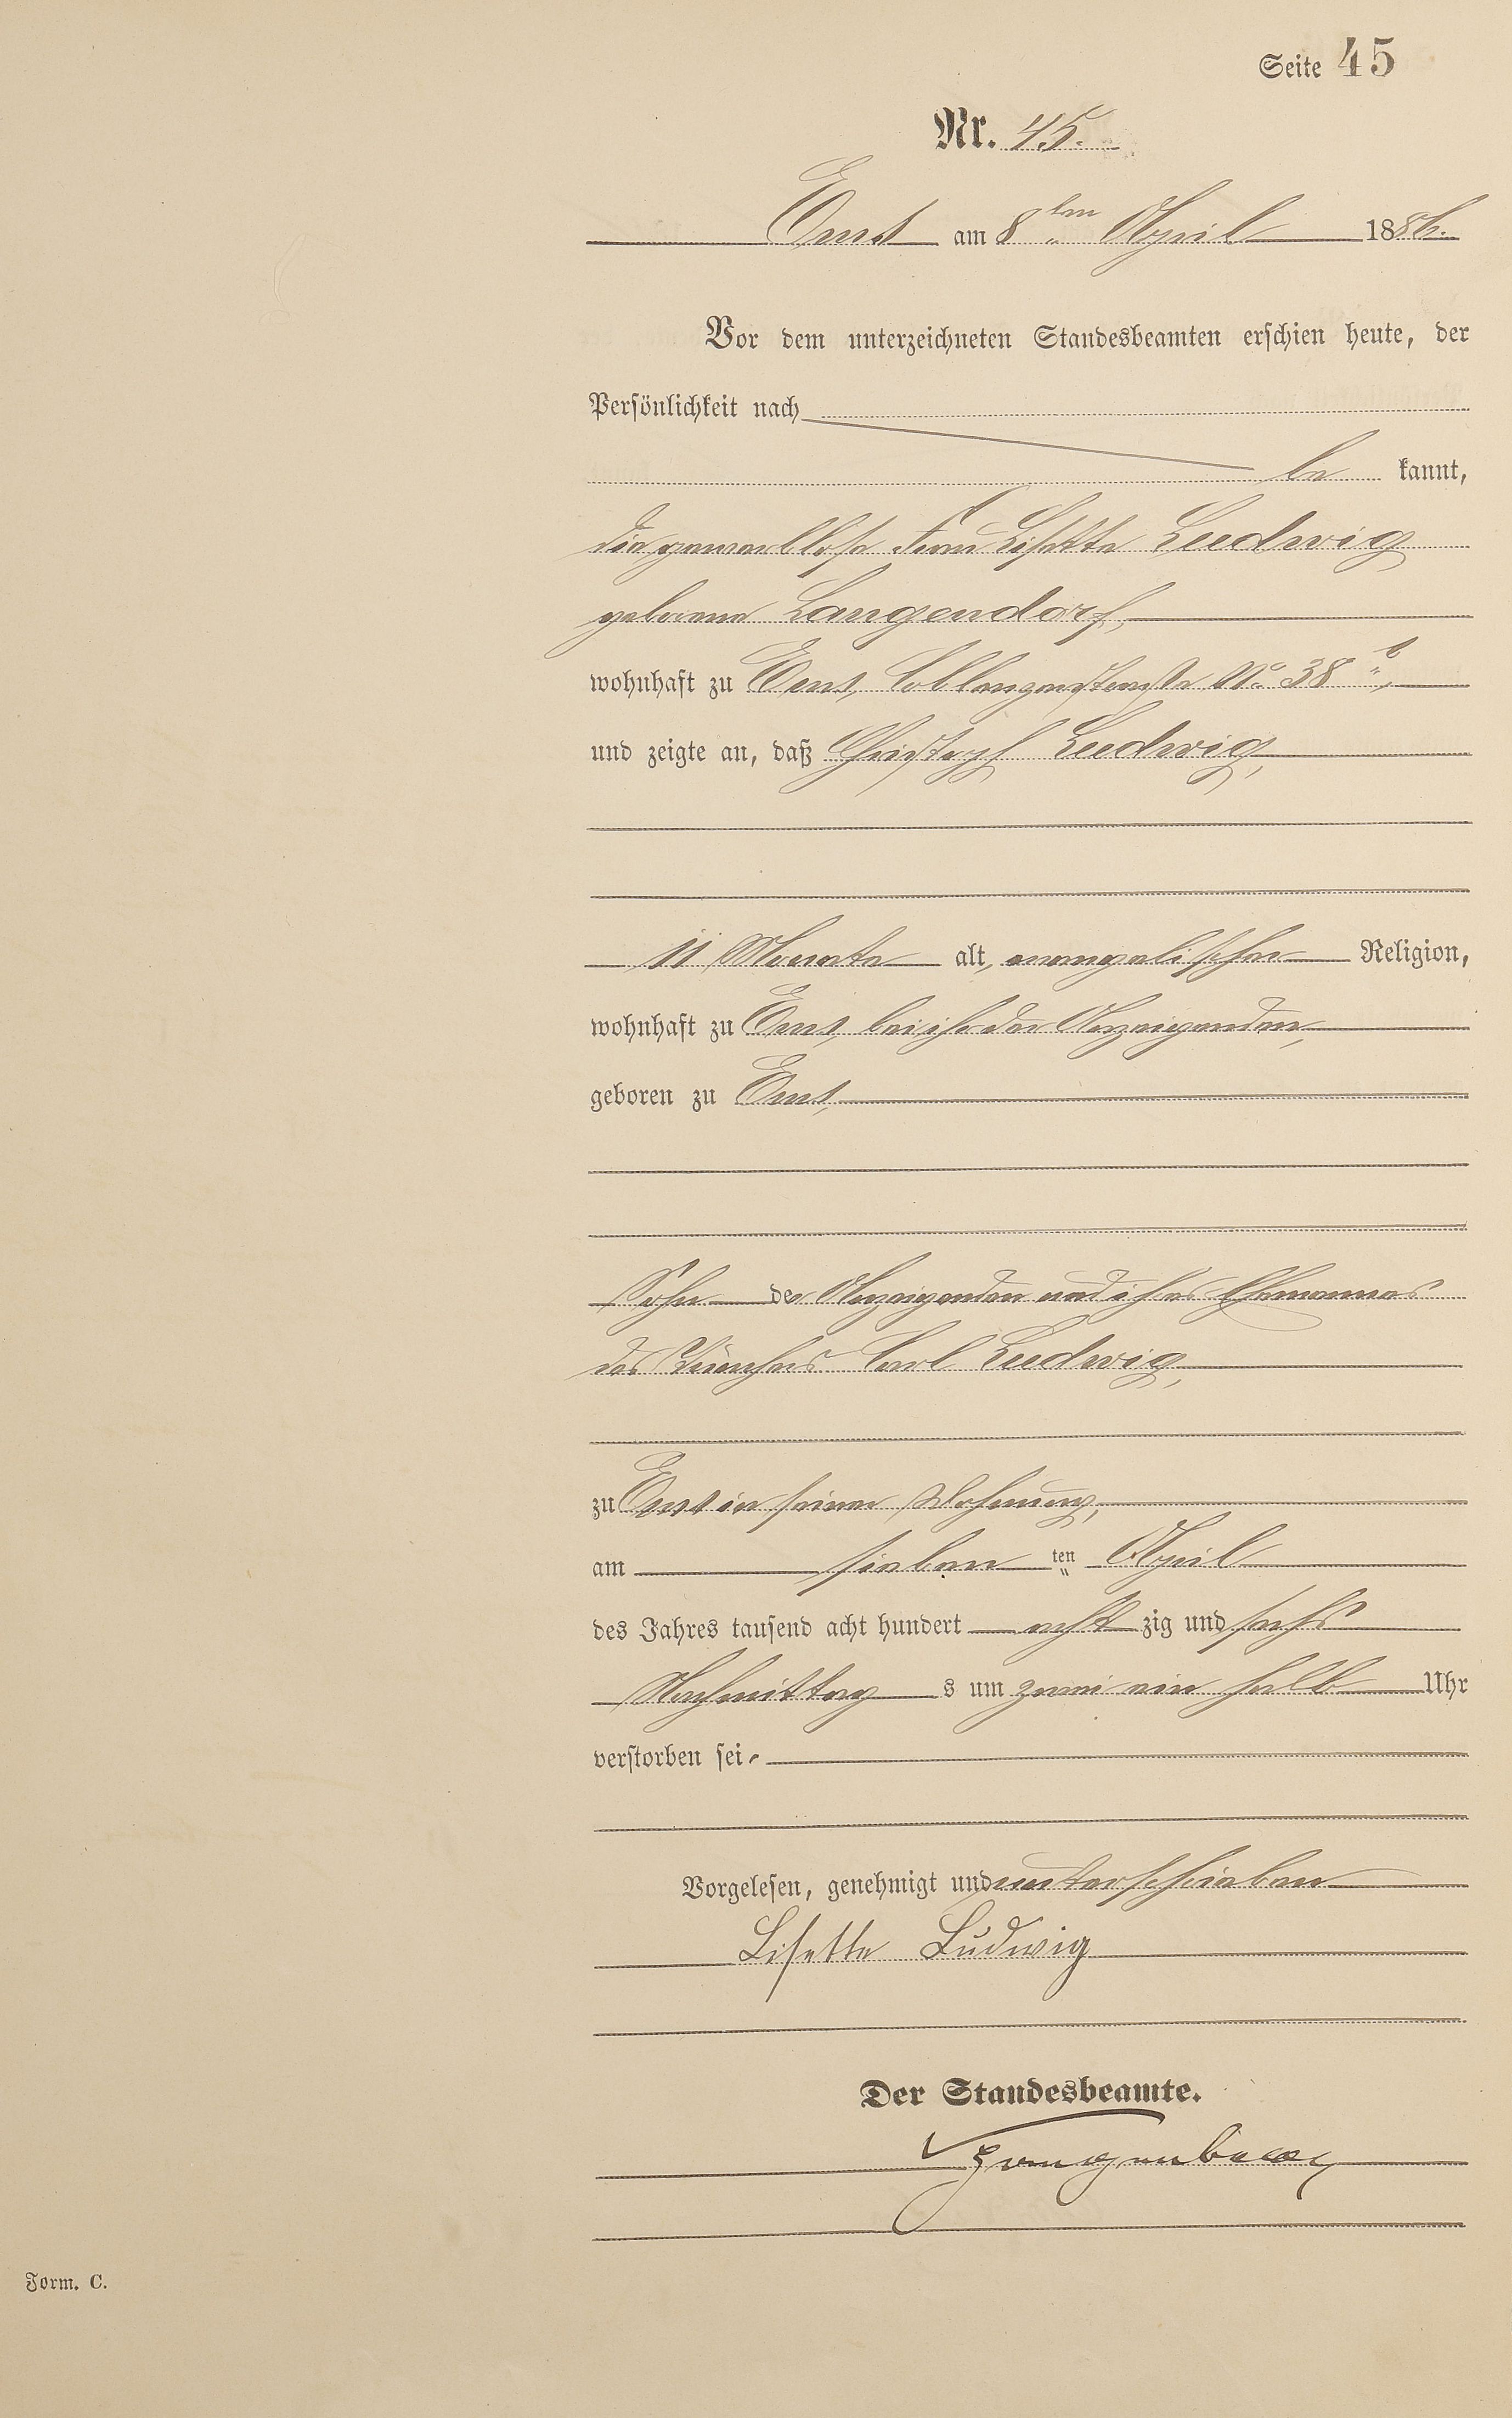 Seite 45
Nr. 45.
Ems am 8ten April 1886.
Vor dem unterzeichneten Standesbeamten erschien heute, der
Persönlichkeit nach
be kannt,
die gewerblose Frau Lisette Ludwig
geborene Langendorf,
wohnhaft zu Ems, Coblenzerstraße No. 38 b,
und zeigte an, daß Christoph Ludwig,
11 Monate alt, evangelischer Religion,
wohnhaft zu Ems, bei ihr der Anzeigenden,
geboren zu Ems,
Sohn der Anzeigenden und ihres Ehemannes
des Tünchers Carl Ludwig,
zu Ems in seiner Wohnung,
am sieben ten April
des Jahres tausend acht hundert acht zig und sechs
Nachmittag s um zwei ein halb Uhr
verstorben sei.
Vorgelesen, genehmigt und unterschrieben
Lisette Ludwig
Der Standesbeamte.
Form. C.